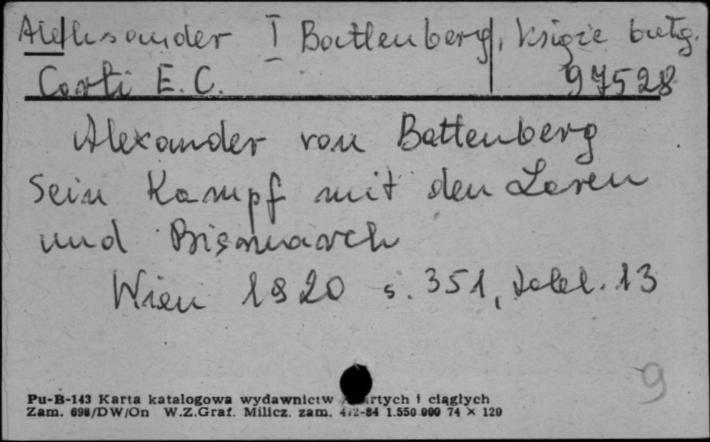 Aleksander I Battenberg, książe bułg.
Corti E.C. 97528
Alexander von Battenberg
Sein Kampf mit den Zaren
und Bismarck
Wien 1920 s. 351, tabl. 13
9
Pu-B-143 Karta katalogowa wydawnictw zwartych i ciągłych
Zam. 698/DW/On W.Z.Graf. Milicz. zam. 472-84 1.550 000 74 × 120